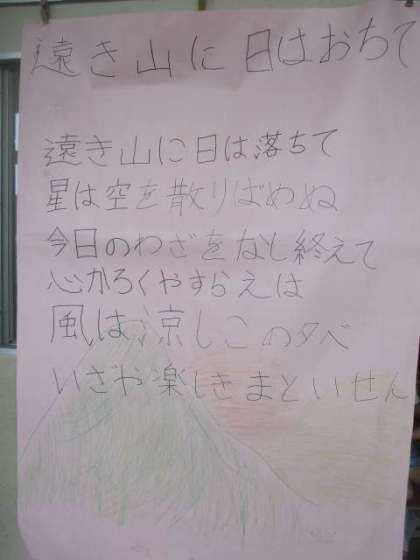 遠き山に日はおちて
遠き山に日は落ちて
星は空を散りばめぬ
今日のわざをなし終えて
心かろくやすらえは
風は涼しこの夕べ
いざや楽しきまといせん